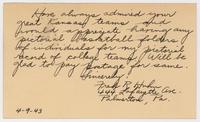 Have always admired your
great Kansas teams and
would appreciate having any
pictorial basketball folders
of individuals for my pictorial
record of college teams. Will be
glad to pay postage for same.
Sincerely,
Fred R.
644 Lafayette Ave.
Palmerton, Pa.
4-9-43